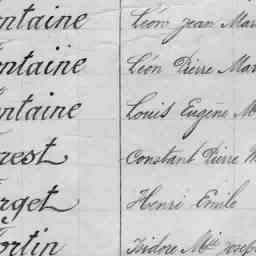 ntaine Léon Jean Mar
ntaine Léon Pierre Mar
ntaine Louis Eugène M
rest Constant Pierre M
rget Henri Emile
ortin Isidore Mie Josep